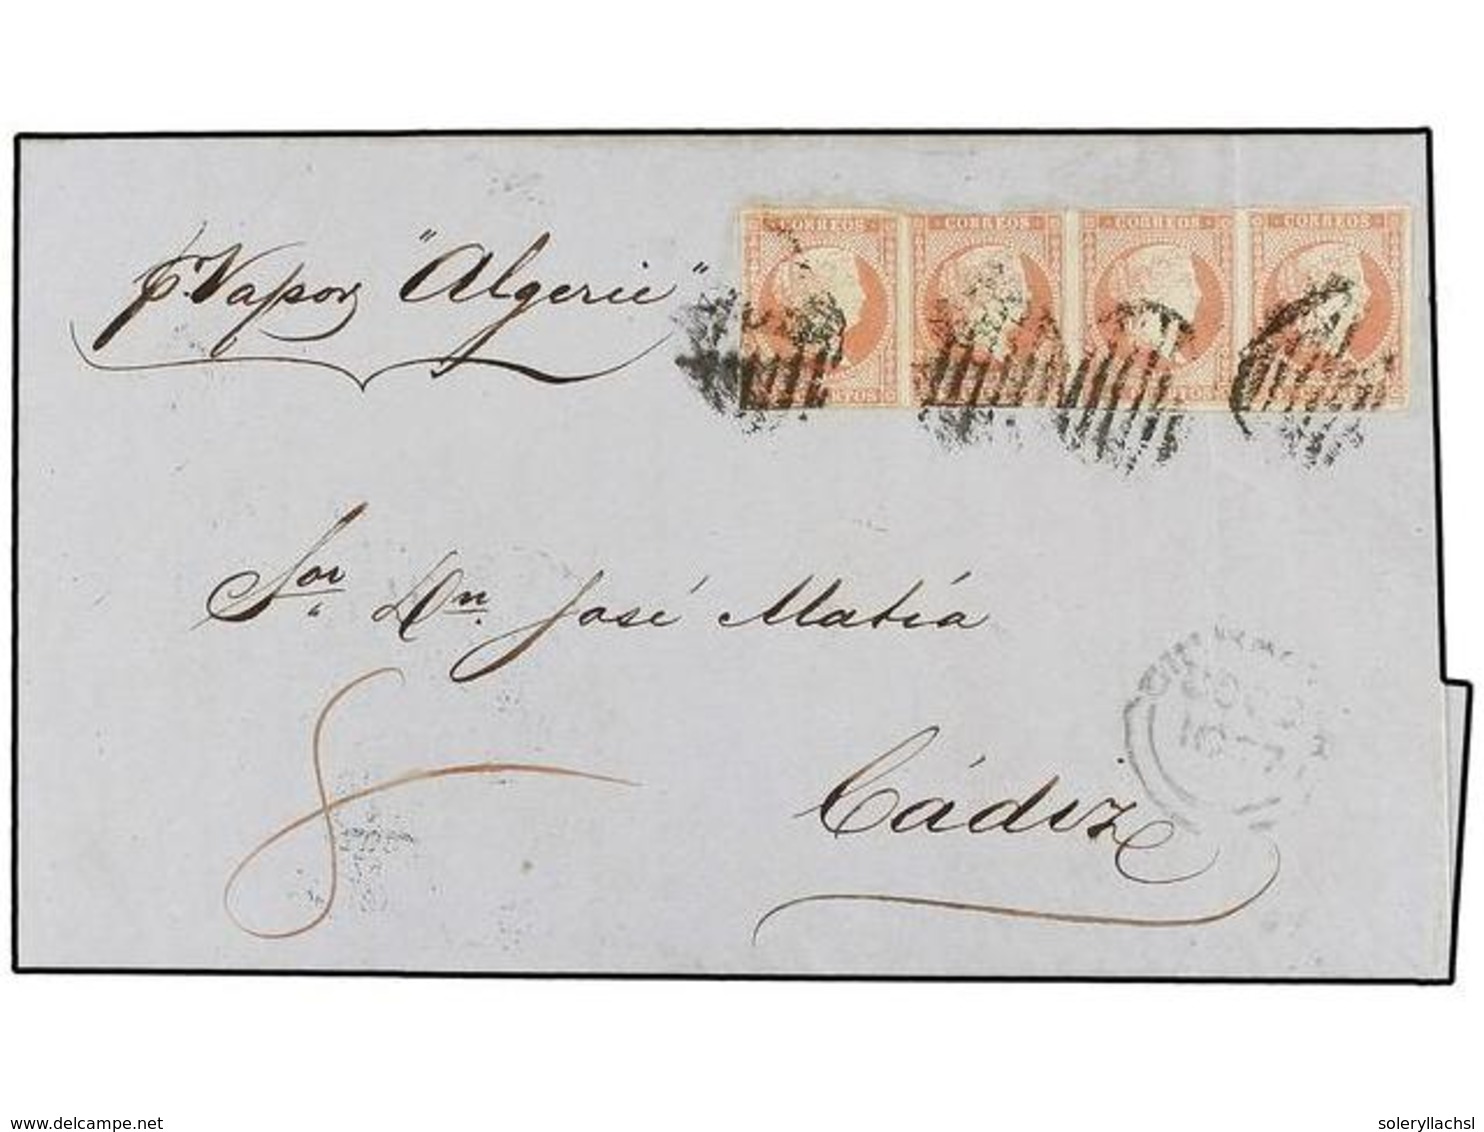 CORREOS CORREOS CORREOS CORREOS
p. Vapor "Algerie"
Sor. Dn. José Matía
Cádiz
delcampe.net
soleryllachsl